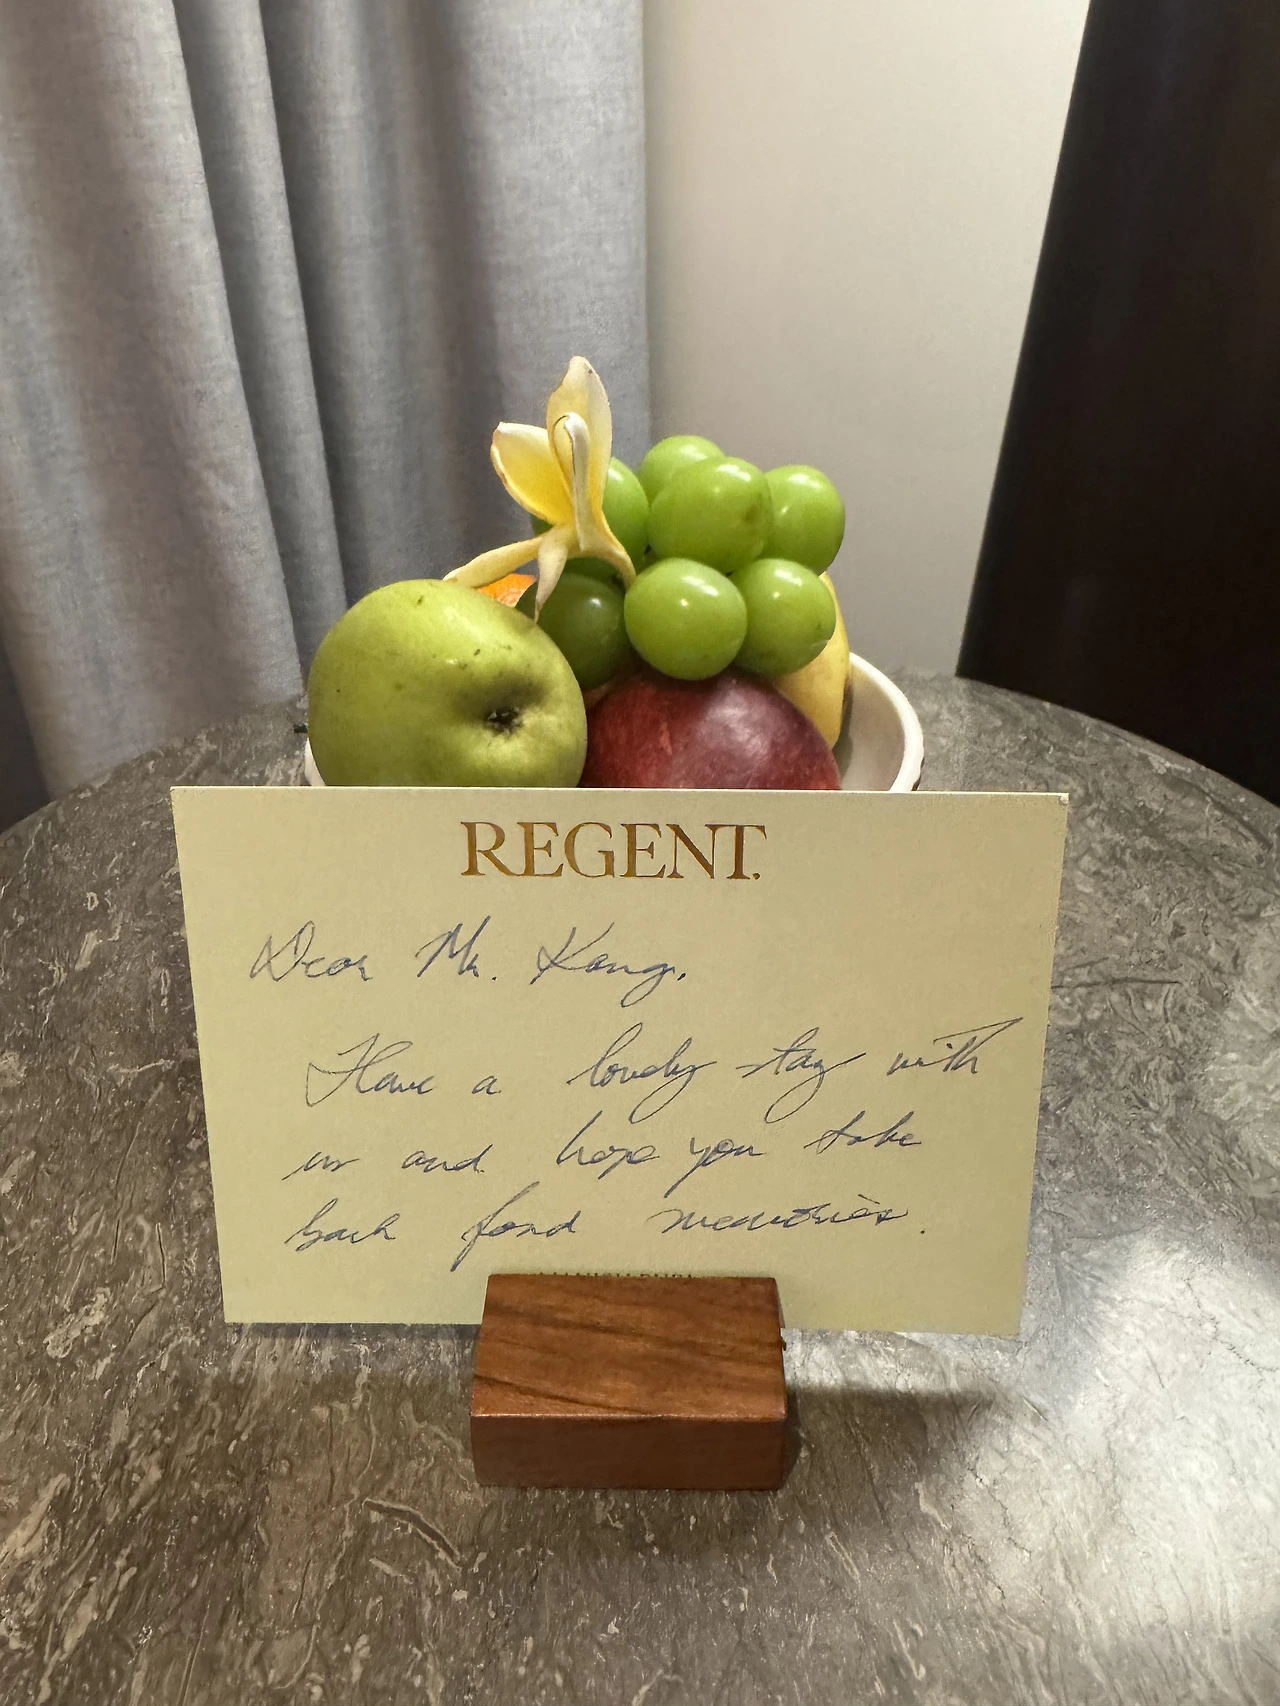 REGENT.
Dear Mr. Kang,
Have a lovely stay with
us and hope you take
back fond memories.